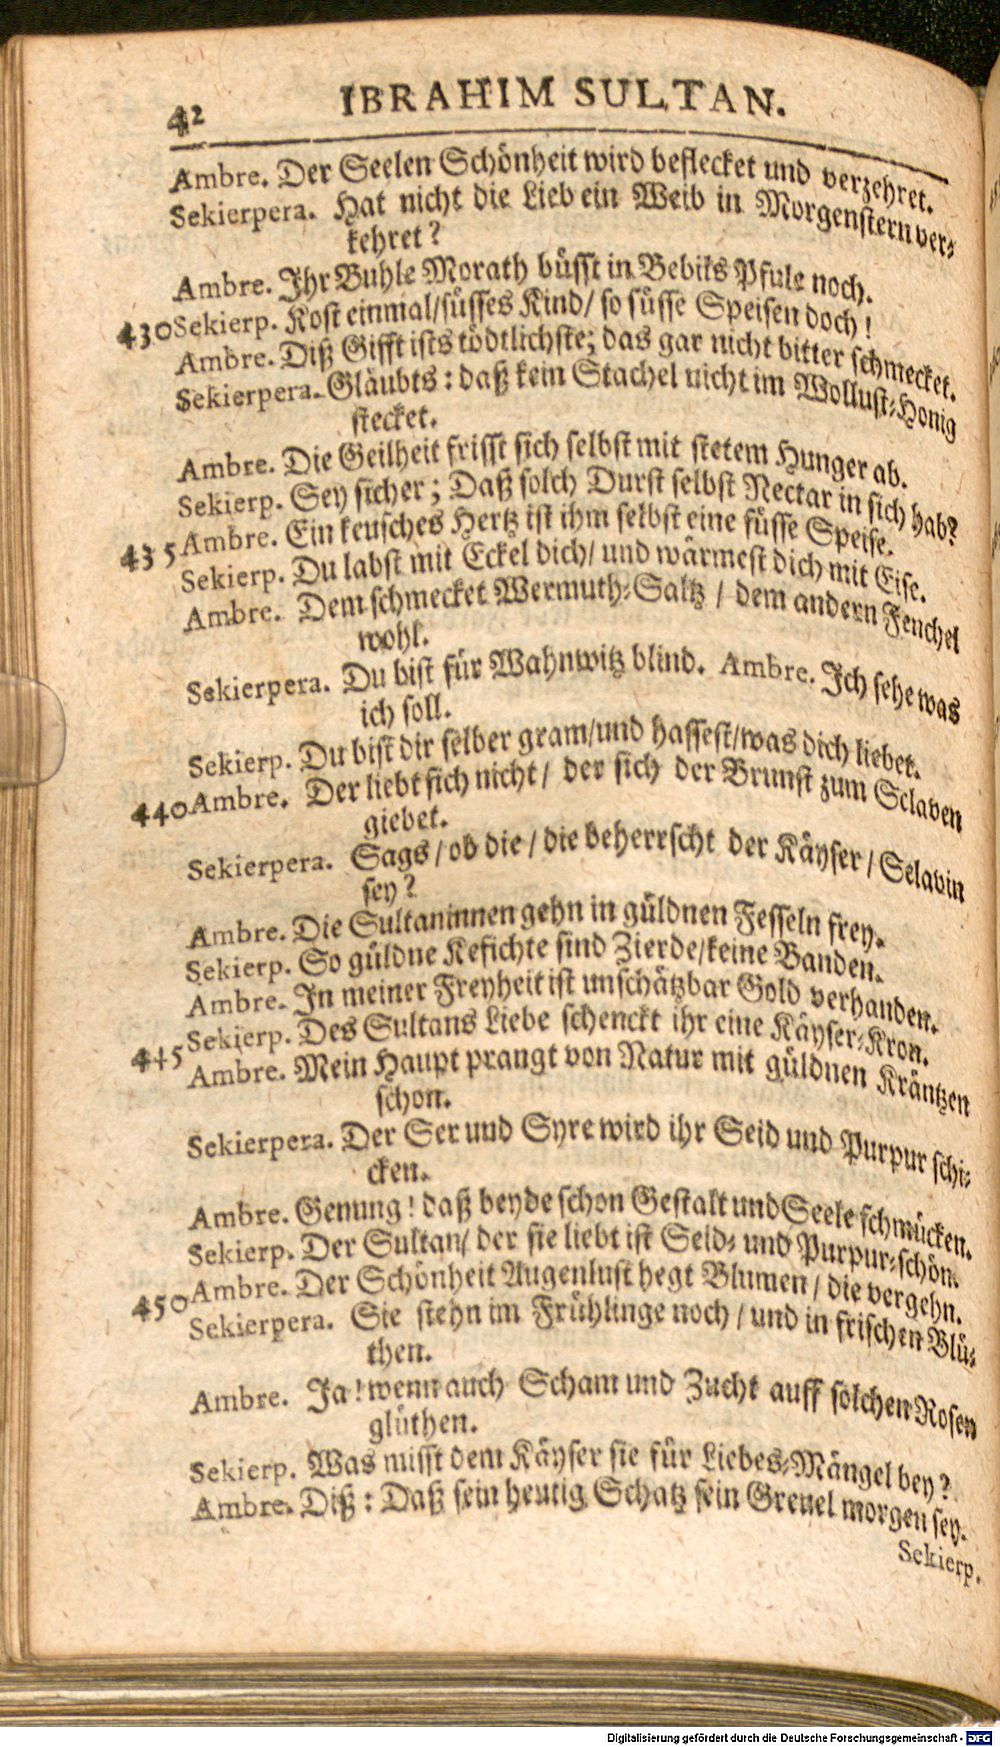 42 IBRAHIM SULTAN.
Ambre. Der Seelen Schönheit wird beflecket und verzehret.
Sekierpera. Hat nicht die Lieb ein Weib in Morgenstern ver-
kehret?
Ambre. Ihr Buhle Morath büsst in Bebiks Pfule noch.
430 Sekierp. Kost einmal/süsses Kind/ so süsse Speisen doch!
Ambre. Diß Gifft ists tödtlichste; das gar nicht bitter schmecket.
Sekierpera. Gläubts: daß kein Stachel nicht im Wollust-Honig
stecket.
Ambre. Die Geilheit frisst sich selbst mit stetem Hunger ab.
Sekierp. Sey sicher; Daß solch Durst selbst Nectar in sich hab?
435 Ambre. Ein keusches Hertz ist ihm selbst eine süsse Speise.
Sekierp. Du labst mit Eckel dich/ und wärmest dich mit Eise.
Ambre. Dem schmecket Wermuth-Saltz / dem andern Fenchel
wohl.
Sekierpera. Du bist für Wahnwitz blind. Ambre. Ich sehe was
ich soll.
Sekierp. Du bist dir selber gram/und hassest/was dich liebet.
440 Ambre. Der liebt sich nicht/ der sich der Brunst zum Sclaven
giebet.
Sekierpera. Sags/ob die/ die beherrscht der Käyser/ Sclavin
sey?
Ambre. Die Sultaninnen gehn in güldnen Fesseln frey.
Sekierp. So güldne Kefichte sind Zierde/keine Banden.
Ambre. In meiner Freyheit ist unschätzbar Gold verhanden.
Sekierp. Des Sultans Liebe schenckt ihr eine Käyser-Kron.
445 Ambre. Mein Haupt prangt von Natur mit güldnen Kräntzen
schon.
Sekierpera. Der Ser und Syre wird ihr Seid und Purpur schi-
cken.
Ambre. Genung! daß beyde schon Gestalt und Seele schmücken.
Sekierp. Der Sultan/ der sie liebt ist Seid- und Purpur-schön.
450 Ambre. Der Schönheit Augenlust hegt Blumen/ die vergehn.
Sekierpera. Sie stehn im Frühlinge noch/ und in frischen Blü-
then.
Ambre. Ja! wenn auch Scham und Zucht auff solchen Rosen
glüthen.
Sekierp. Was misst dem Käyser sie für Liebes-Mängel bey?
Ambre. Diß: Daß sein heutig Schatz sein Greuel morgen sey.
Sekierp.
Digitalisierung gefördert durch die Deutsche Forschungsgemeinschaft - DFG